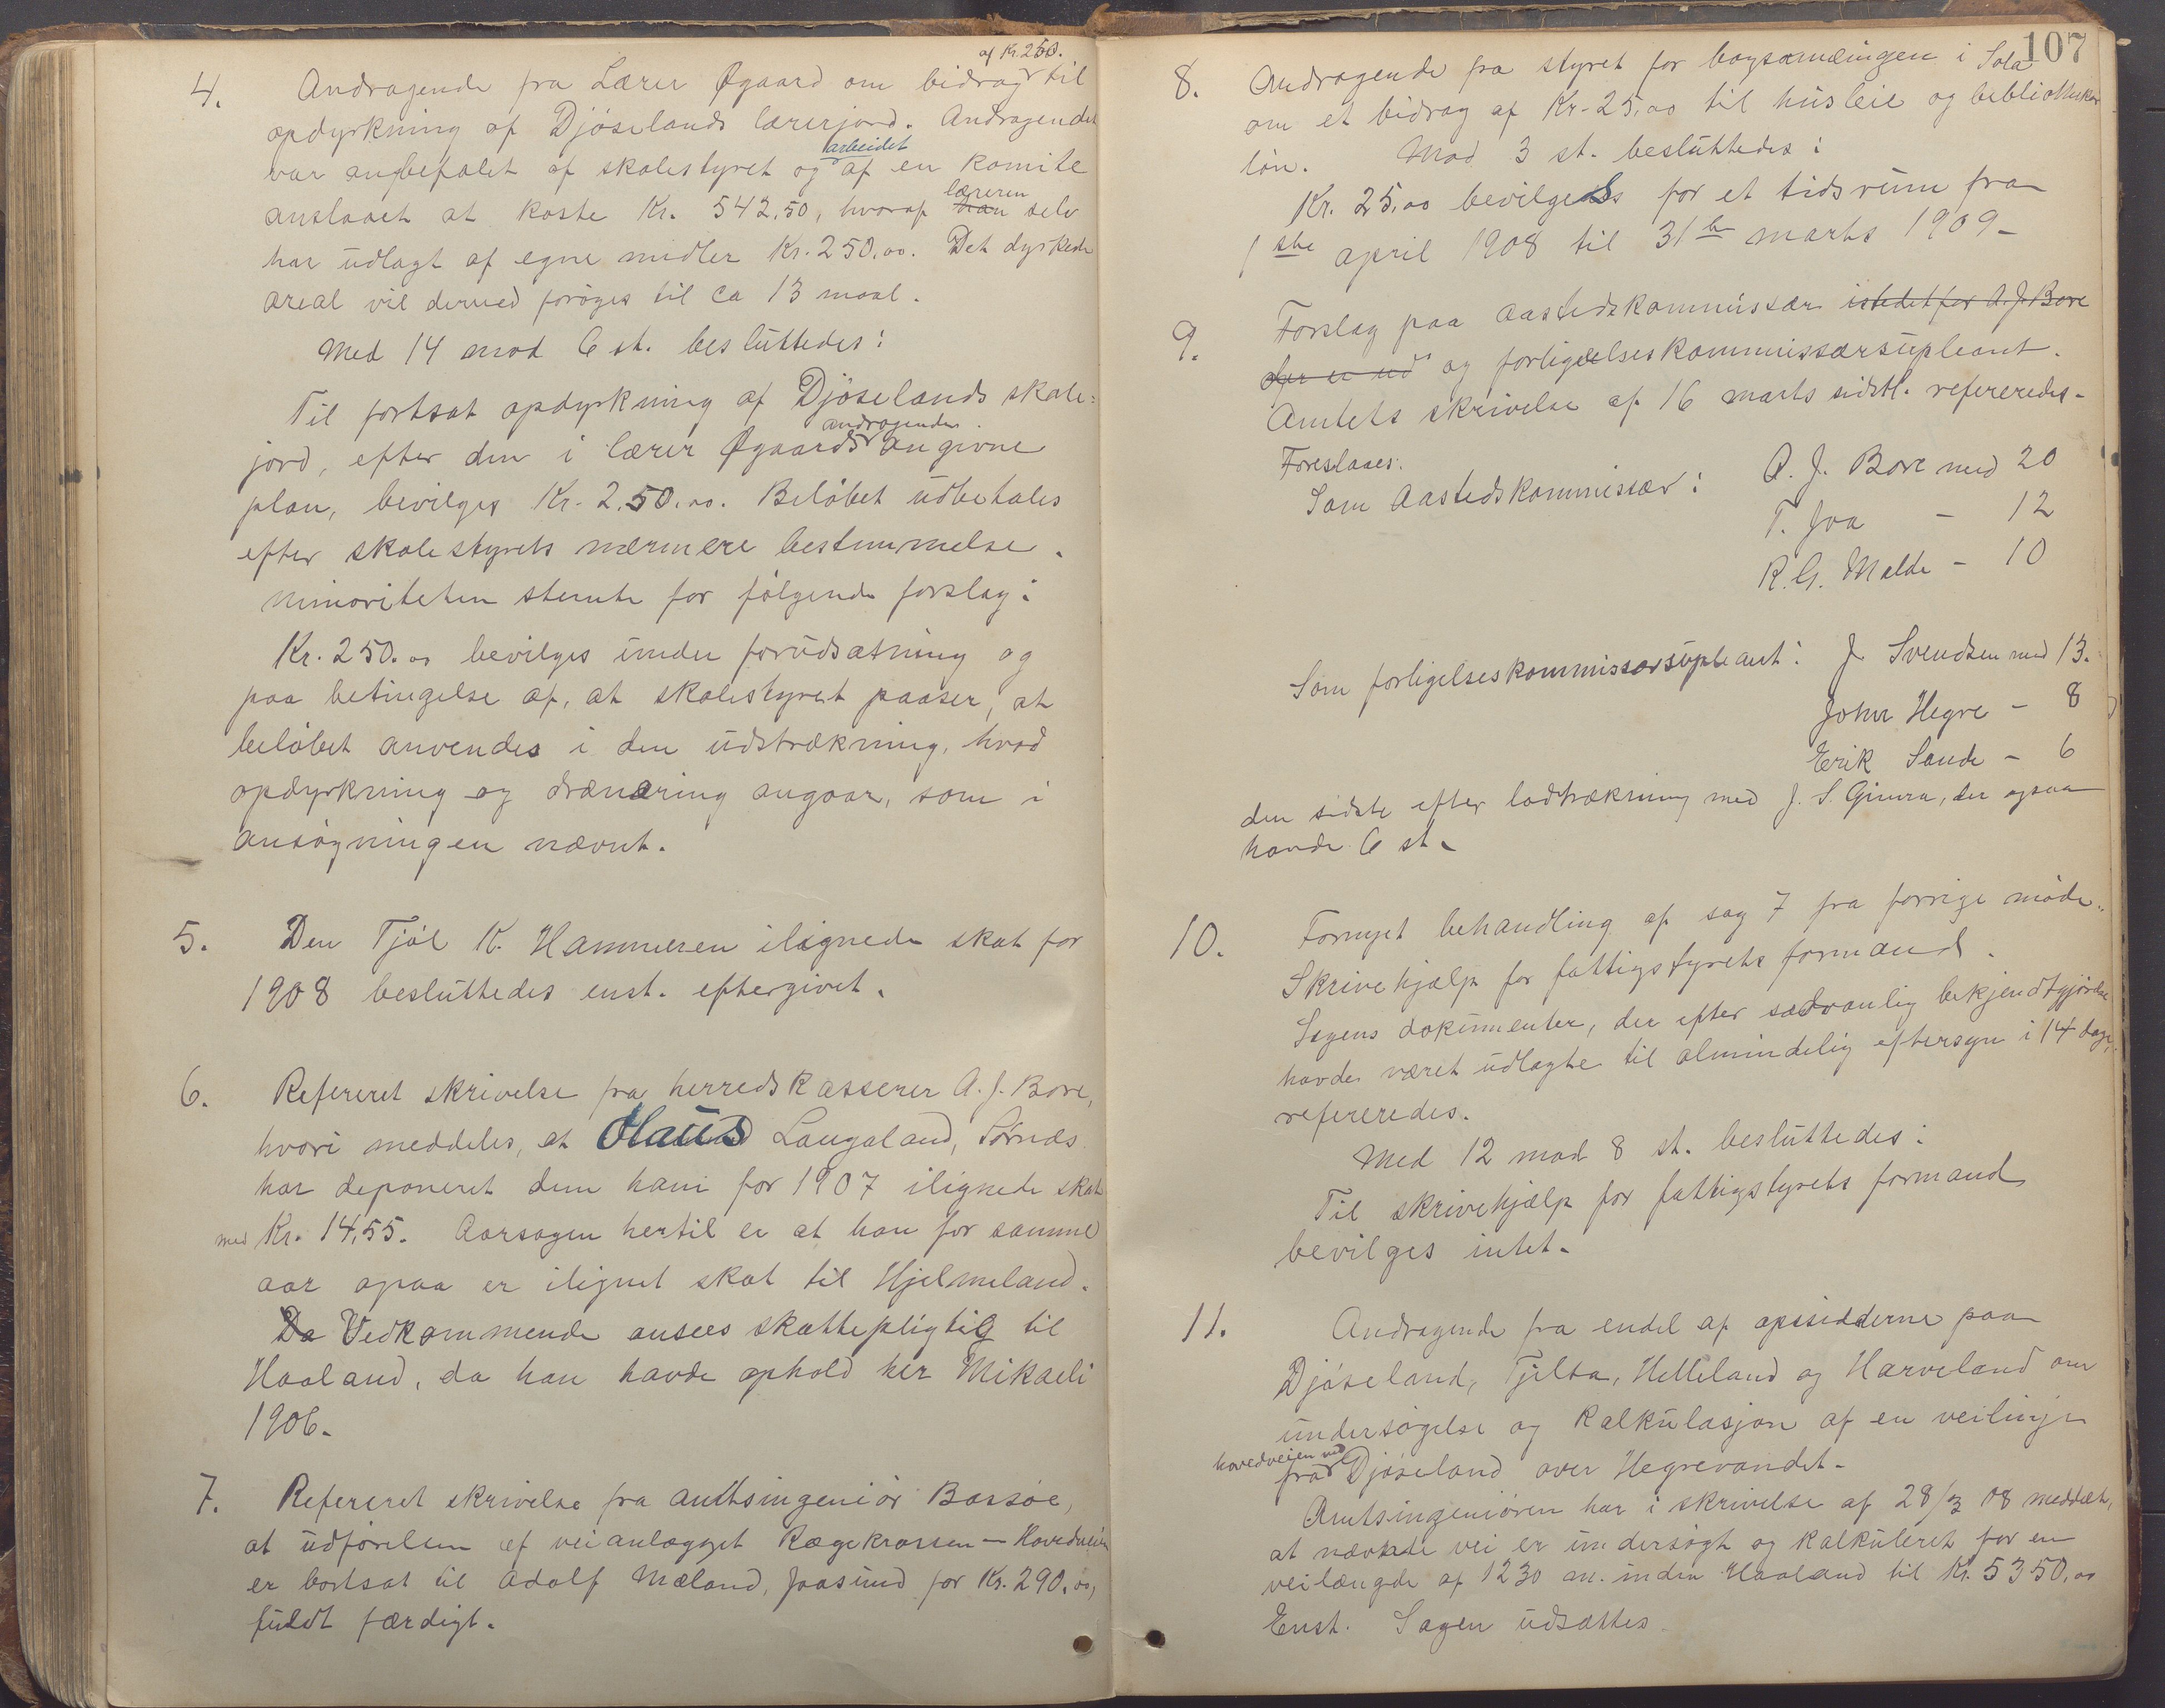 4. Andragende fra Lærer Øgaard om bidrag af Kr. 250. til
opdyrkning af Djöselands lærerjord. Andragendet
var anbefalet af skolestyret og arbeidet af en komite
anslaaet at koste Kr. 542,50, hvoraf han læreren selv
har udlagt af egne midler Kr. 250.00. Det dyrkede
areal vil derved foröges til ca 13 maal.
Med 14 mod 6 st. besluttedes:
Til fortsat opdyrkning af Djöselands skole-
jord, efter den i lærer Øgaards andragende angivne
plan, bevilges Kr. 250.00. Belöbet udbetales
efter skolestyrets nærmere bestemmelse.
Minoriteten stemte for fölgende forslag:
Kr. 250.00 bevilges under forudsætning og
paa betingelse af, at skolestyret paaser, at
belöbet anvendes i den udstrækning, hvad
opdyrkning og drænering angaar, som i
ansögningen nævnt.
5. Den Tjöl K. Hammeren ilignede skat for
1908 besluttedes enst. eftergivet.
6. Refereret skrivelse fra herredskasserer A. J. Bore,
hvori meddeles, at Olaus Langaland, Sörnes
har deponeret den ham for 1907 ilignede skat
med Kr. 14,55. Aarsagen hertil er at han for samme
aar ogsaa er ilignet skat til Hjelmeland.
Da Vedkommende ansees skattepligtig til
Haaland, da han havde ophold her Mikaeli
1906.
7. Refereret skrivelse fra amtsingeniör Bassöe,
at udförelsen af veianlægget Rægekrossen – Hovedveien
er bortsat til Adolf Mæland, Jaasund for Kr. 290.00,
fuldt færdigt.
107
8. Andragende fra styret for bogsamlingen i Sola
om et bidrag af Kr. 25,00 til husleie og bibliothekar
lön. Mod 3 st. besluttedes:
Kr. 25,00 bevilgedes for et tidsrum fra
1ste april 1908 til 31te marts 1909.
9. Forslag paa aastedskommissær istedetfor A. J. Bore
der er ud og forligelseskommissærsupleant.
Amtets skrivelse af 16 marts sidstl. refereredes.
Foreslaaes:
Som Aastedskommissær: A. J. Bore med 20
T. Joa – 12
R. G. Malde – 10
Som forligelseskommissærsupleant: J Svendsen med 13.
John Hegre – 8
Erik Sande – 6
den sidste efter lodtrækning med J. S. Gimra, der ogsaa
havde 6 st.
10. Fornyet behandling af sag 7 fra forrige möde.
Skrivehjælp for fattigstyrets formand.
Sagens dokumenter, der efter sædvanlig bekjendtgjörelse
havde været udlagte til almindelig eftersyn i 14 dage,
refereredes.
Med 12 mod 8 st. besluttedes:
Til skrivehjælp for fattigstyrets formand
bevilges intet.
11. Andragende fra endel af opsidderne paa
Djöseland, Tjelta, Helleland og Harveland om
undersögelse og kalkulasjon af en veilinje
fra hovedveien ved Djöseland over Hegrevandet.
Amtsingeniören har i skrivelse af 28/3 08 meddelt,
at nævnte vei er undersögt og kalkuleret for en
veilængde af 1230 m. inden Haaland til Kr. 5350,00
Enst. Sagen udsættes